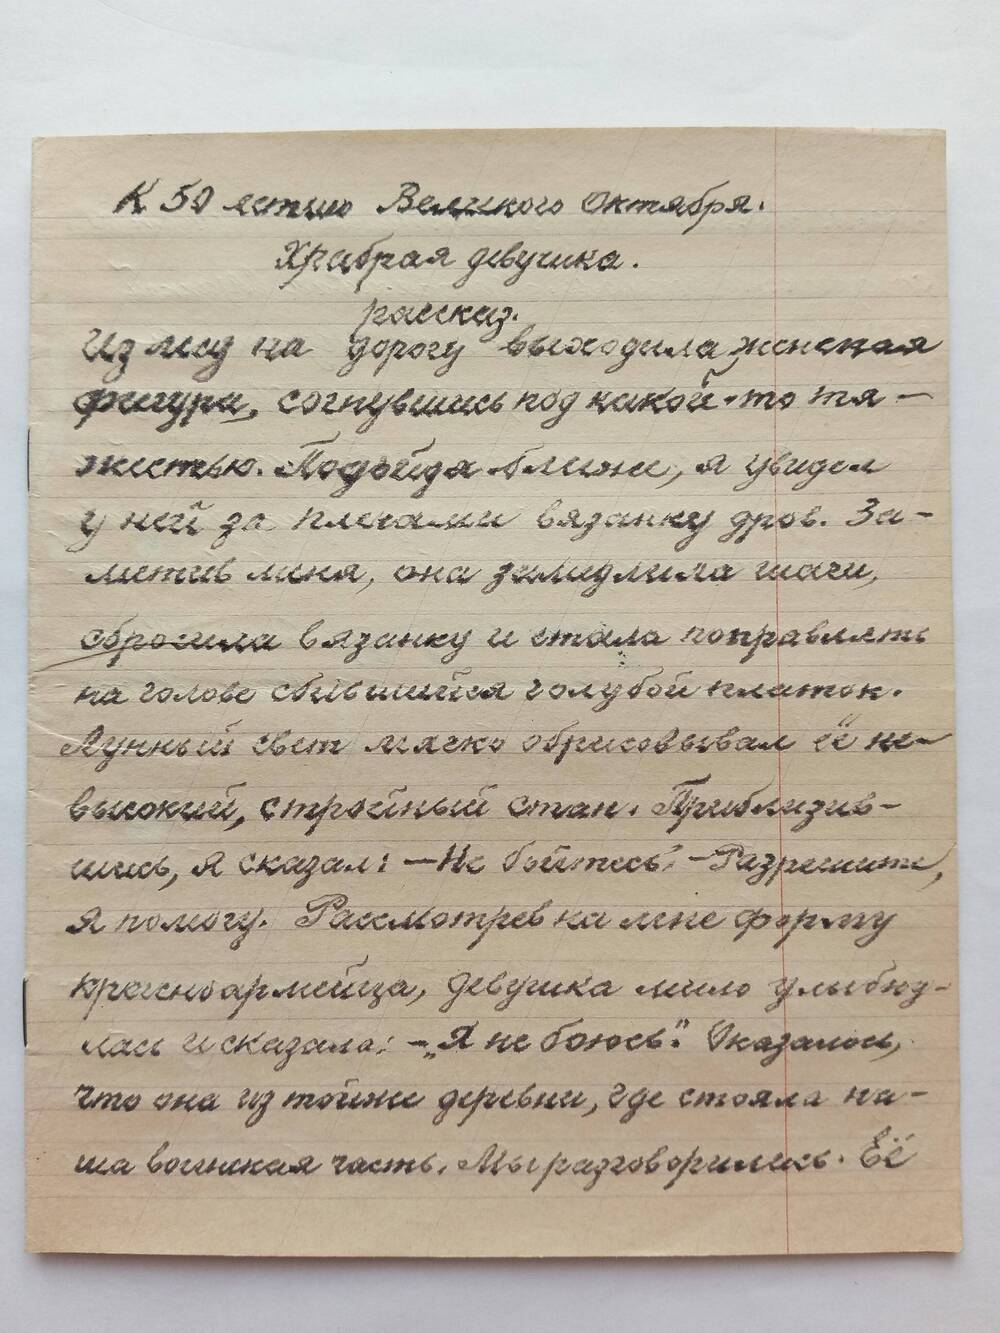 К 50 летию Великого Октября.
Храбрая девушка.
рассказ.
Из лесу на дорогу выходила женская
фигура, согнувшись под какой-то тя-
жестью. Подойдя ближе, я увидел
у ней за плечами вязанку дров. За-
метив меня, она замедлила шаги,
сбросила вязанку и стала поправлять
на голове сбившийся голубой платок.
Лунный свет мягко обрисовывал её не-
высокий, стройный стан. Приблизив-
шись, я сказал: - Не бойтесь. - Разрешите,
я помогу. Рассмотрев на мне форму
красноармейца, девушка мило улыбну-
лась и сказала: - „Я не боюсь". Оказалось,
что она из тойже деревни, где стояла на-
ша воинская часть. Мы разговорились. Её